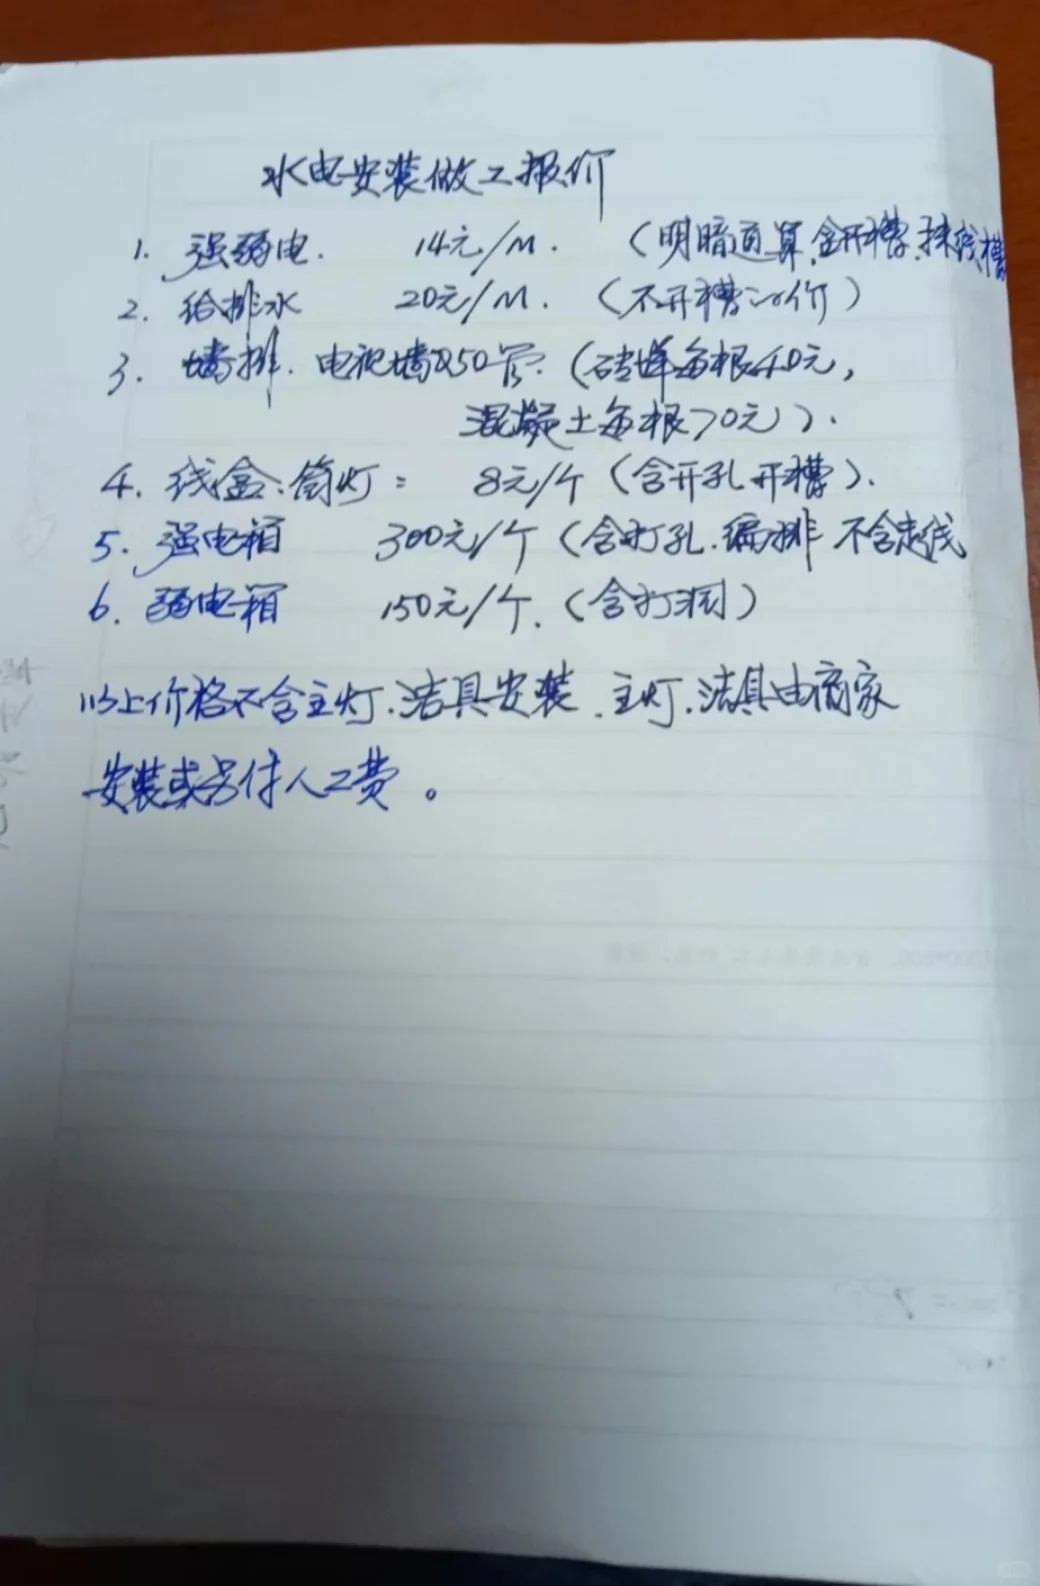 水电安装做工报价
1. 强弱电. 14元/M. (明暗通算,含开槽.抹线槽
2. 给排水 20元/M. (不开槽
3. 墙排. 电视墙850管. (砖墙每根40元,
混凝土每根70元).
4. 线盒、筒灯: 8元/个 (含开孔开槽).
5. 强电箱 300元/个 (含打孔. 编排 不含走线
6. 弱电箱 150元/个. (含打洞)
以上价格不含主灯.洁具安装.主灯.洁具由商家
安装或另付人工费。